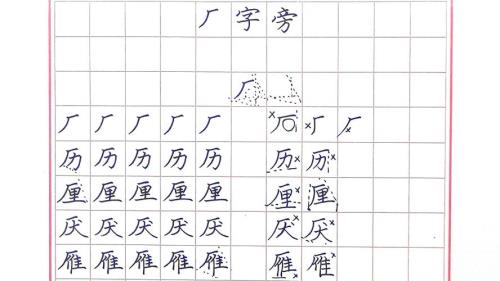 厂字旁
厂
厂厂厂厂厂 后厂厂
历历历历历 历历
厘厘厘厘厘 厘厘
厌厌厌厌厌 厌厌
雁雁雁雁雁 雁雁